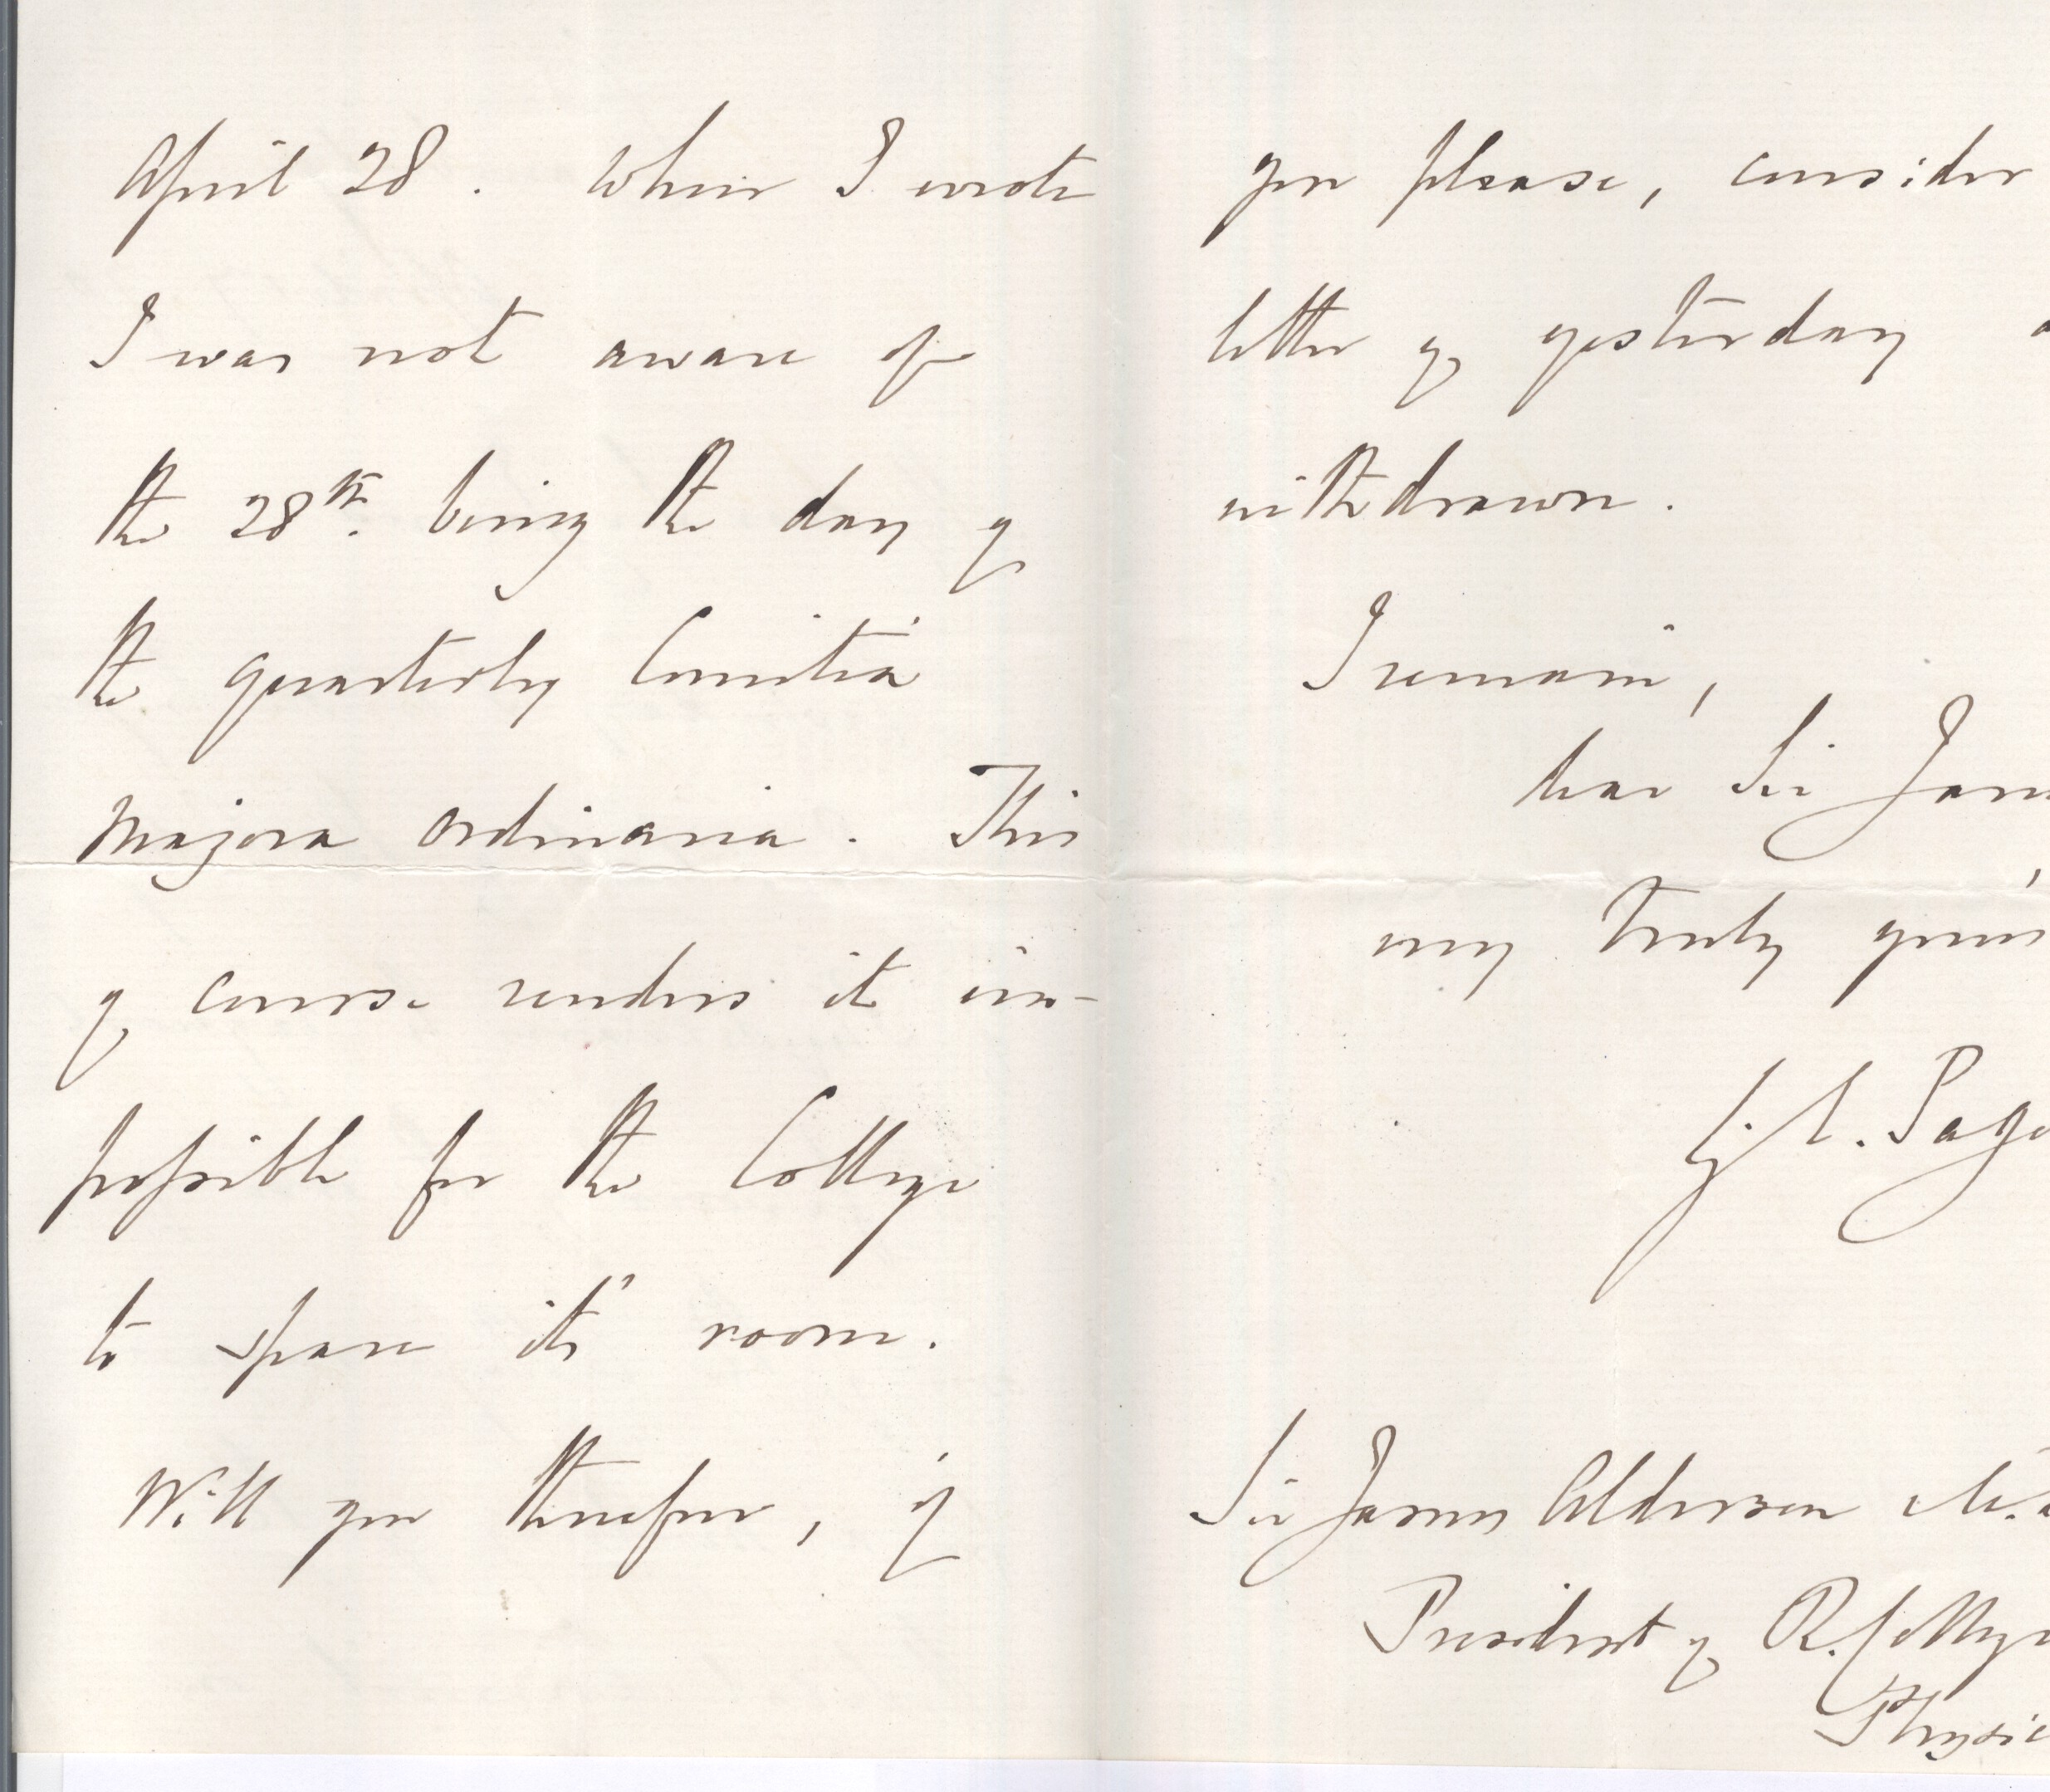 April 28. When I wrote
I was not aware of
the 28th. being the day of
the quarterly Comitia
Majora Ordinaria. This
of course renders it im-
possible for the College
to spare its' room.
Will you therefore, if
you please, consider
letter of yesterday
withdrawn.
I remain,
dear Sir Jam
very truly yours
G. E. Page
Sir James Alderson M.
President of R. College
Physic